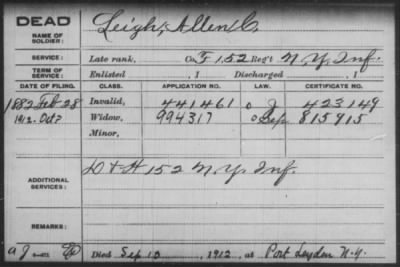 DEAD
NAME OF SOLDIER:
Leigh, Allen C.
SERVICE:
Late rank, Co. F 152 Reg't N. Y. Inf.
TERM OF SERVICE:
Enlisted , 1 Discharged , 1
DATE OF FILING. CLASS. APPLICATION NO. LAW. CERTIFICATE NO.
1882 Feb 28 Invalid, 441461 J 423149
1912. Oct 7 Widow, 994317 Sep. 815915
Minor,
ADDITIONAL SERVICES:
D + H 152 N. Y. Inf.
REMARKS:
Died Sep 10, 1912, at Port Leyden N.Y.